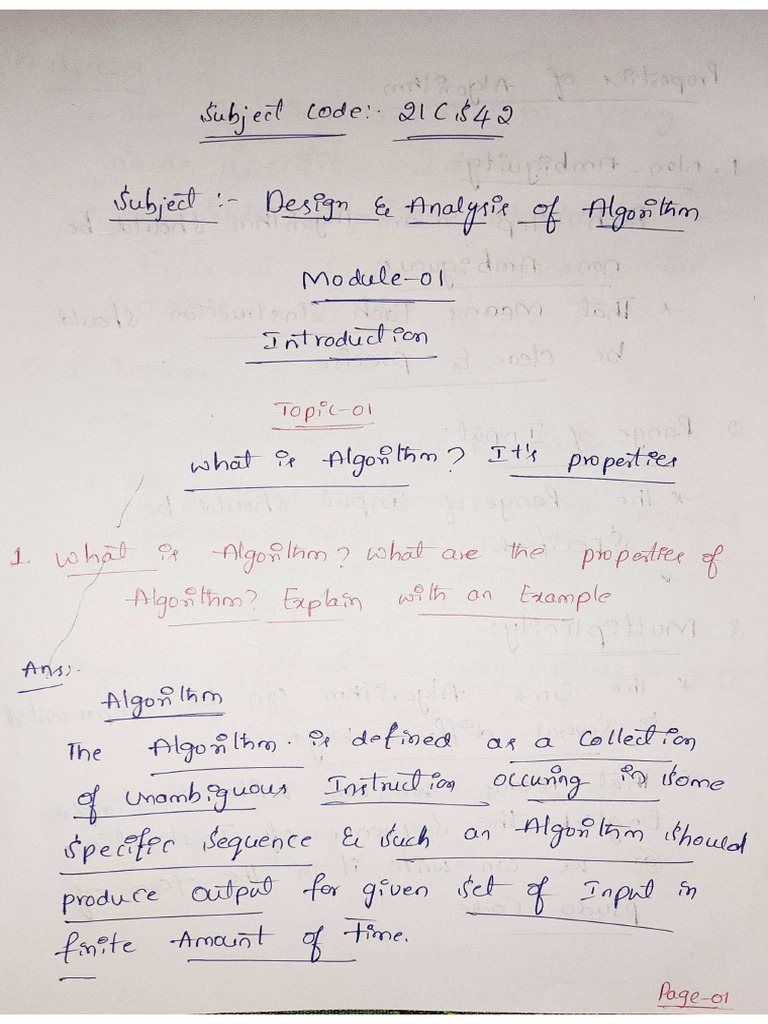 Subject Code:- 21CS42
Subject :- Design & Analysis of Algorithm
Module-01
Introduction
Topic-01
What is Algorithm? It's properties
1. What is Algorithm? What are the properties of
Algorithm? Explain with an Example
Ans:-
Algorithm
The Algorithm is defined as a collection
of unambiguous Instruction occuring in some
specific sequence & such an Algorithm should
produce output for given set of Input in
finite Amount of Time.
Page-01